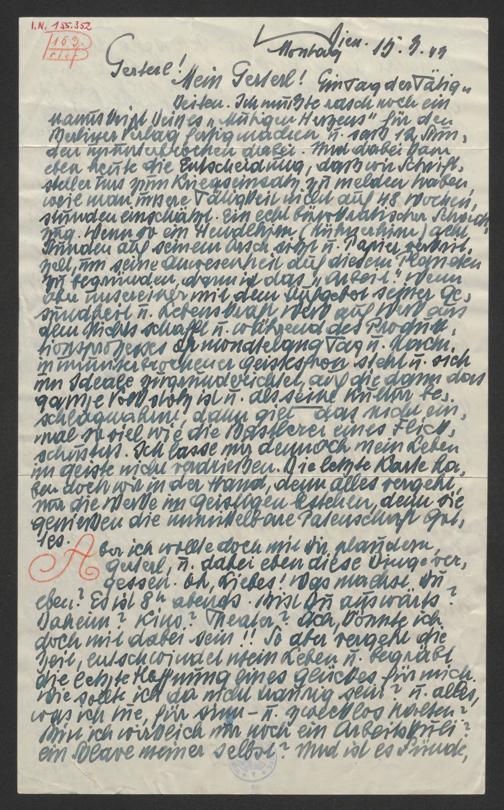 I.N. 155.352
153
Wien. 15.3.43
Montag
Gerterl!
Mein Gerterl! Ein Tag der Tätig-
keiten. Ich mußte rasch noch ein
Manuskript meines „Mutigen Herzens" für den
Berliner Verlag fertigmachen u. saß 12 Stun-
den ununterbrochen dabei. Und dabei kam
eben heute die Entscheidung, daß wir Schrift-
steller uns zum Kriegseinsatz zu melden haben,
weil man unsere Tätigkeit nicht auf 48 Wochen-
stunden einschätzt. Ein echt bürokratischer
Wenn so ein acht
Stunden auf seinem Arsch sitzt u. Papier
um seine Anwesenheit auf diesem Planeten
zu begründen, dann ist das „Arbeit". Wenn
aber unsereiner mit dem Aufgebot seiner Ge-
sundheit u. Lebenskraft Werk auf Werk aus
dem Nichts schafft u. während des Produk-
tionsprozesses monatelang Tag u. Nacht
in ununterbrochener Geistesfron steht u. sich
im Ideale auf die dann das
ganze Volk stolz ist u. als seine Kultur be-
schlagnahmt, dann gilt das nicht ein-
mal so viel wie die Bastlerei eines Flick-
schusters. Ich lasse mir dennoch mein Leben
im Geiste nicht verdrießen. Die letzte Karte ha-
ben doch wir in der Hand, denn alles vergeht,
nur die Werke im Geistigen bestehen, denn sie
genießen die unmittelbare Patenschaft Got-
tes.
Aber ich wollte doch mit dir plaudern,
Guterl, u. dabei eben diese Dinge ver-
gessen. Oh, Liebes! Was machst du
eben? Es ist 8h abends. Bist du auswärts?
Daheim? Kino? Theater? Ach, könnte ich
doch mit dabei sein!! So aber vergeht die
Zeit, entschwindet mein Leben u. begräbt
die letzte Hoffnung eines Glückes für mich.
Wie sollte ich da nicht traurig sein? u. alles,
was ich tue, für sinn- u. zwecklos halten?
Bin ich wirklich nur noch ein Arbeitskuli?
ein Sklave meiner selbst? Und ist es Sünde,